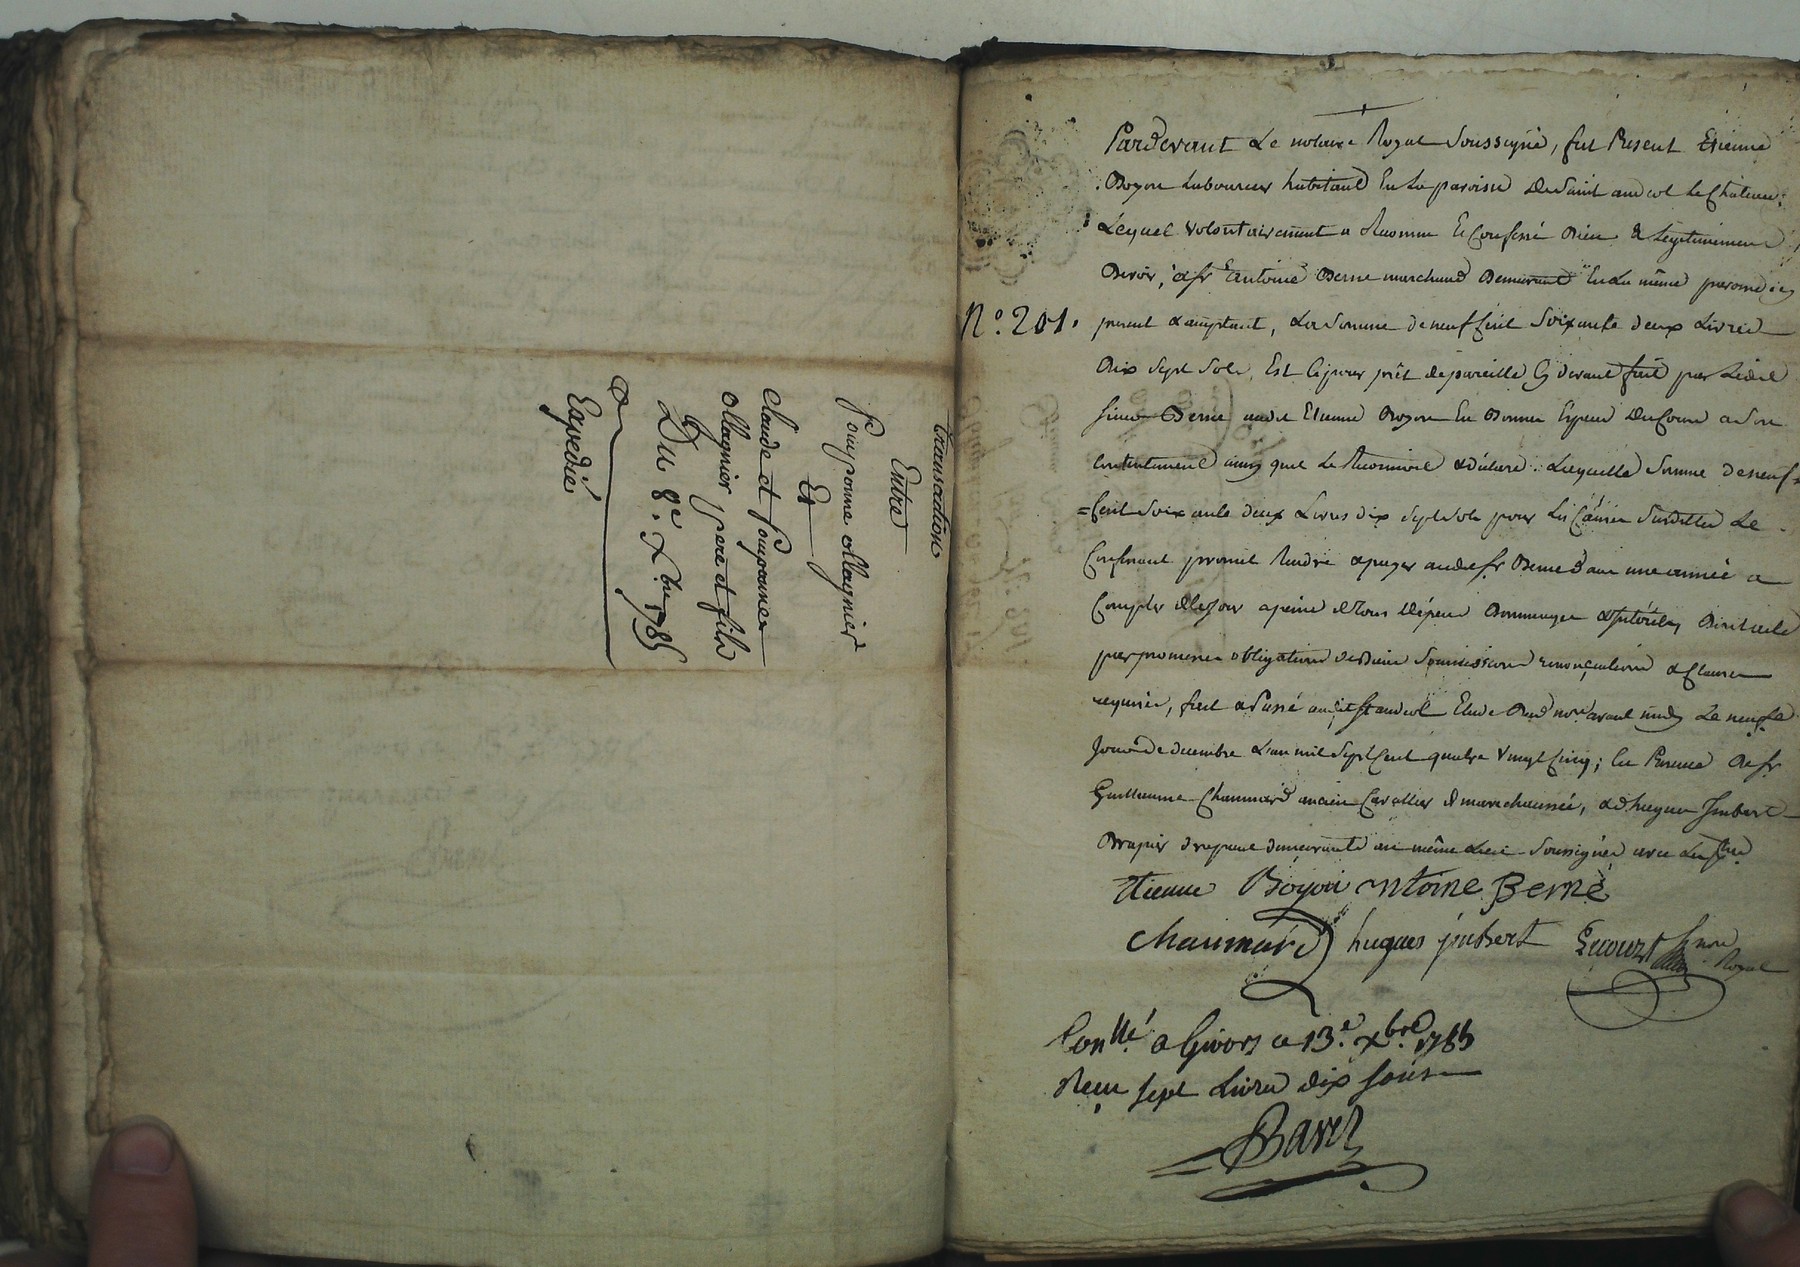 transaction
Entre
pouponne ollagnier
Et
Claude et pouponne
ollagnier pere et fils
Du 8e. xbre 1785
Expedié
Pardevant Le notaire Royal Soussigné, fut Present Etienne
Boyon Laboureur habitant En La paroisse De Saint andeol Le Chateau;
Lequel volontairement a Reconnu Et Confessé Bien & Legitimement
Devoir, a sr antoine Berne marchand Demeurant En La même paroisse icy
present & acceptant, La Somme de neuf Cent Soixante deux Livres
Dix Sept Sols, Est Cy pour prêt de pareille Cy devant fait par Ledit
sieur Berne audit Etienne Boyon En Bonnes Especes Du Cours a Son
Contentement ainsy que Le Reconnoit & déclare; Laquelle Somme de neuf
=Cent Soixante deux Livres dix Sept Sols pour Les Causes Susdittes Le
Confessant promet Rendre & payer audit sr Berne dans une année a
Compter de Ce jour a peine de tous dépens Dommages & Intérêts,
par promesses obligations de Biens Soumissions renonciations & Clauses
requises, fait & Passé audit St andeol Etude Dud. nore avant midy Le neuf
Jour de decembre L'an mil Sept Cent quatre vingt Cinq; En Presence De sr
Guillaume Chaumard ancien Cavallier de marechaussée, & d'hugues Imbert
Drapier drapant demeurants au même Lieu Soussignés avec Les
No. 201.
Etienne Boyon antoine Berne
Chaumard hugues jmbert
Royal
Conllé. a Givors ce 13e. xbre. 1785
Recu sept Livres dix sous